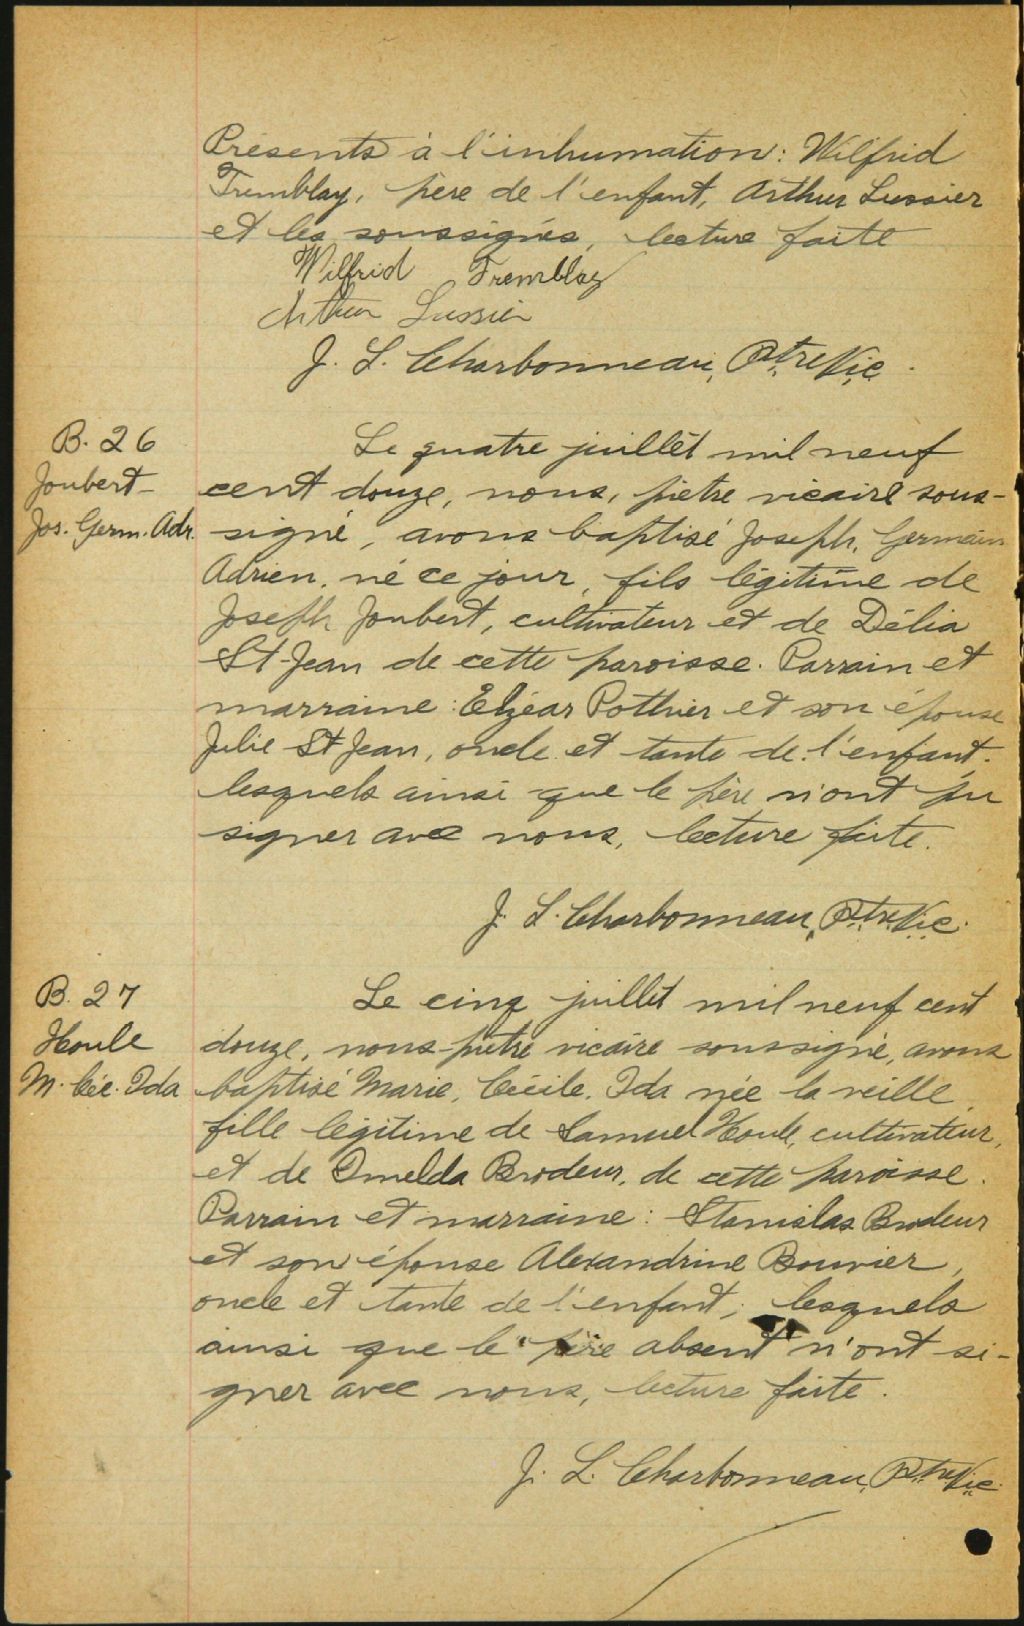 Présents à l'inhumation: Wilfrid
Tremblay, père de l'enfant, Arthur Lussier
et les soussignés, lecture faite
Wilfrid Tremblay
Arthur Lussier
J. L. Charbonneau, Ptre Vic.
B. 26
Joubert
Jos. Germ. Adr.
Le quatre juillet mil neuf
cent douze, nous, prêtre vicaire sous-
signé, avons baptisé Joseph, Germain
Adrien, né ce jour, fils légitime de
Joseph Joubert, cultivateur et de Délia
St-Jean de cette paroisse. Parrain et
marraine: Elzéar Pothier et son épouse
Julie St Jean, oncle et tante de l'enfant,
lesquels ainsi que le père n'ont pu
signer avec nous, lecture faite.
J. L. Charbonneau, Ptre Vic.
B. 27
Houle
M. Céc. Ida
Le cinq juillet mil neuf cent
douze, nous prêtre vicaire soussigné, avons
baptisé Marie, Cécile, Ida née la veille,
fille légitime de Samuel Houle, cultivateur,
et de Imelda Brodeur, de cette paroisse.
Parrain et marraine: Stanislas Brodeur
et son épouse Alexandrine Bouvier,
oncle et tante de l'enfant, lesquels
ainsi que le père absent n'ont si-
gner avec nous, lecture faite.
J. L. Charbonneau, Ptre Vic.